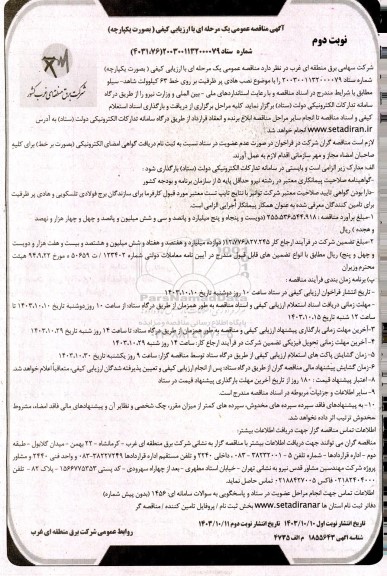 آگهی مناقصه عمومی یک مرحله ای با ارزیابی کیفی ( بصورت یکپارچه)
نوبت دوم
شماره ستاد ۲۰۰۳۰۰۱۱۳۲۰۰۰۰۷۹ (۴۰۳۱/۷۶)
شرکت برق منطقه ای غرب کشور
شرکت سهامی برق منطقه ای غرب در نظر دارد مناقصه عمومی یک مرحله ای با ارزیابی کیفی ( بصورت یکپارچه)
شماره ستاد ۲۰۰۳۰۰۱۱۳۲۰۰۰۰۷۹ را با موضوع نصب هادی پر ظرفیت بر روی خط ۶۳ کیلوولت شاهد- سیلو
مطابق با شرایط مندرج در اسناد مناقصه و با رعایت استانداردهای ملی - بین المللی و وزارت نیرو را از طریق درگاه
سامانه تدارکات الکترونیکی دولت (ستاد) برگزار نماید. کلیه مراحل برگزاری از دریافت و بارگذاری اسناد استعلام
کیفی و اسناد مناقصه تا انجام سایر مراحل مناقصه ابلاغ برنده و انعقاد قرارداد از طریق درگاه سامانه تدارکات الکترونیکی دولت (ستاد) به آدرس
www.setadiran.ir انجام خواهد شد.
لازم است مناقصه گران شرکت در فراخوان در صورت عدم عضویت در ستاد نسبت به ثبت نام دریافت گواهی امضای الکترونیکی (بصورت بر خط) برای کلیه
صاحبان امضاء مجاز و مهر سازمانی اقدام لازم به عمل آورند.
الف: مدارک زیر الزامی است و بایستی در سامانه تدارکات الکترونیکی دولت (ستاد) بارگذاری شود:
-گواهینامه صلاحیت پیمانکاری معتبر در رشته نیرو حداقل پایه ۵ از سازمان برنامه و بودجه کشور
-دارا بودن گواهی تایید صلاحیت معتبر شرکت توانیر یا نتایج تایپ تست معتبر مورد قبول کارفرما برای سازندگان برج فولادی تلسکوپی و هادی پر ظرفیت
برای تامین کنندگان معرفی شده به عنوان همکار پیمانکار اجرایی الزامی است.
۱-مبلغ برآورد مناقصه : ۲۵۵.۵۳۶.۵۴۴.۹۱۸ (دویست و پنجاه و پنج میلیارد و پانصد و سی و شش میلیون و پانصد و چهل و چهار هزار و نهصد
و هجده ) ریال
۲-مبلغ تضمین شرکت در فرآیند ارجاع کار ۱۲.۷۷۶.۸۲۷.۲۴۵ ( دوازده میلیارد و هفتصد و هفتاد و شش میلیون و هشتصد و بیست و هفت هزار و دویست
و چهل و پنج) ریال مطابق با انواع تضمین های قابل قبول مندرج در آیین نامه معاملات دولتی شماره ۱۲۳۴۰۲ / ت ۵۰۶۵۹ ه مورخ ۹۴/۹/۲۲ هیئت
محترم وزیران
ب) برنامه زمان بندی فرآیند مناقصه :
- تاریخ انتشار فراخوان ارزیابی کیفی در ستاد ساعت ۱۰ روز دوشنبه تاریخ ۱۴۰۳.۱۰.۱۰
- مهلت زمانی دریافت اسناد استعلام ارزیابی کیفی و اسناد مناقصه به طور همزمان از طریق درگاه ستاد: از ساعت ۱۰ روز دوشنبه تاریخ ۱۴۰۳.۱۰.۱۰ تا
ساعت ۱۲ شنبه تاریخ ۱۴۰۳.۱۰.۱۵
۳-آخرین مهلت زمانی بارگذاری پیشنهاد ارزیابی کیفی و مناقصه به طور همزمان از طریق درگاه ستاد: تا ساعت ۱۴ روز شنبه تاریخ ۱۴۰۳.۱۰.۲۹
۴-آخرین مهلت زمانی تحویل فیزیکی تضمین شرکت در فرآیند ارجاع کار: ساعت ۱۴ روز شنبه ۱۴۰۳.۱۰.۲۹
۵- زمان گشایش پاکت های استعلام ارزیابی کیفی از طریق درگاه ستاد توسط مناقصه گزار: ساعت ۹ روز یکشنبه تاریخ ۱۴۰۳.۱۰.۳۰
۶- زمان گشایش پیشنهاد مالی مناقصه گران از طریق درگاه ستاد: پس از انجام ارزیابی کیفی و تعیین پذیرفته شدگان ارزیابی کیفی، متعاقباً اعلام خواهد شد.
۸- اعتبار پیشنهاد قیمت : ۱۸۰ روز از تاریخ آخرین مهلت بارگذاری پیشنهاد قیمت در ستاد
۹- سایر اطلاعات و جزئیات مربوطه در اسناد مناقصه مندرج است.
۱۰- به پیشنهادهای فاقد سپرده سپرده های مخدوش، سپرده های کمتر از میزان مقرر، چک شخصی و نظایر آن و پیشنهادهای مالی فاقد امضاء، مشروط
مخدوش ترتیب اثر داده نخواهد شد.
اطلاعات تماس مناقصه گزار جهت دریافت اطلاعات بیشتر:
مناقصه گران می توانند جهت دریافت اطلاعات بیشتر با مناقصه گزار به نشانی شرکت برق منطقه ای غرب - کرمانشاه - ۲۲ بهمن - میدان گلایول - طبقه
اطلاعات تماس جهت انجام مراحل عضویت در ستاد و پاسخگویی به سوالات سامانه ای: ۱۴۵۶ (بدون پیش شماره)
دفاتر ثبت نام استان ها www.setadiranar بخش ثبت نام / پروفایل تامین کننده / مناقصه گر
تاریخ انتشار نوبت اول ۱۴۰۳/۱۰/۱۰ تاریخ انتشار نوبت دوم ۱۴۰۳/۱۰/۱۱
شناسه آگهی ۱۸۵۵۶۴۳ م الف ۴۷۳۵
روابط عمومی شرکت برق منطقه ای غرب